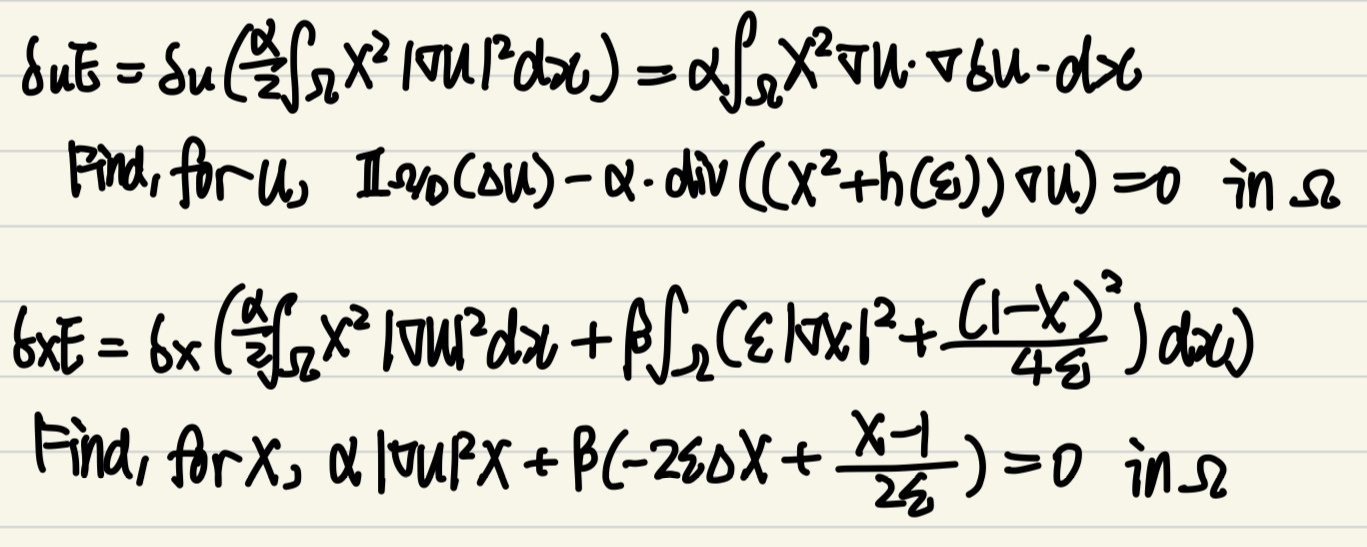 δuE = δu(α/2 ∫_Ω χ² |∇u|² dx) = α∫_Ω χ² ∇u · ∇δu · dx
Find, for u, 𝟙_{Ω\D}(Δu) − α · div((χ² + h(ε)) ∇u) = 0 in Ω
δχE = δχ(α/2 ∫_Ω χ² |∇u|² dx + β∫_Ω (ε|∇χ|² + (1−χ)²/4ε) dx)
Find, for χ, α |∇u|² χ + β(−2εΔχ + χ−1/2ε) = 0 in Ω